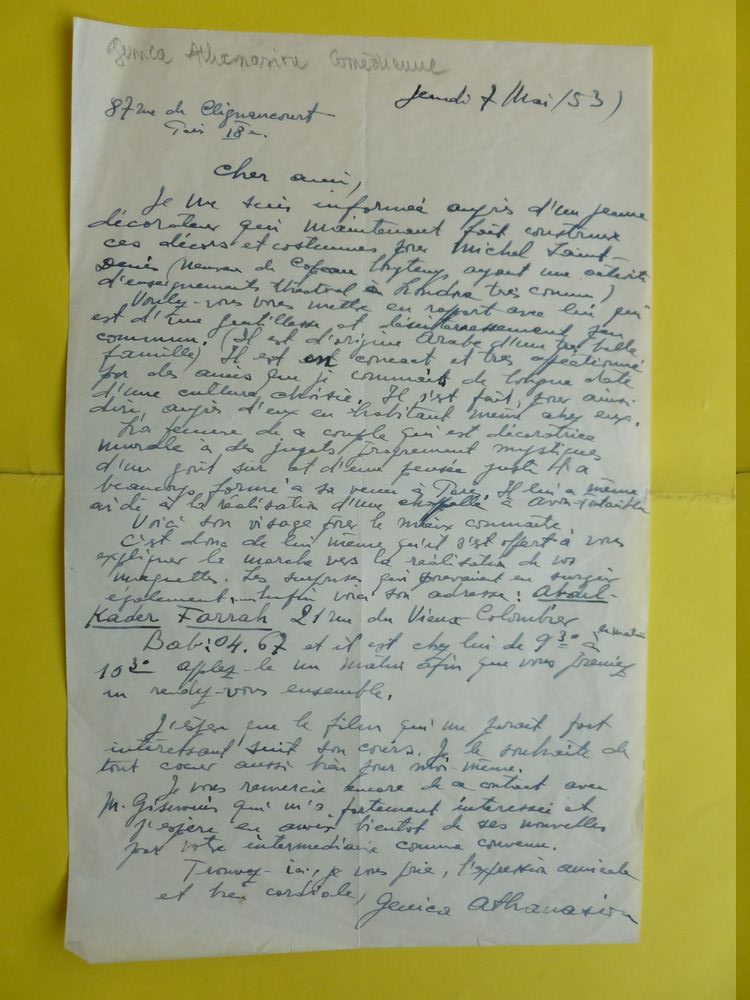 Genica Athanasiou Comédienne
Jeudi 7 Mai (53)
87 rue de Clignancourt
Paris 18e.
Cher ami,
Je me suis informée auprès d'un jeune
décorateur qui maintenant fait construire
ces décors et costumes pour Michel Saint-
Denis (neveu de Copeau longtemps ayant une activité
d'enseignements théatral à Londres très connu)
Voulez-vous vous mettre en rapport avec lui qui
est d'une gentillesse et désinteressement peu
commun. (Il est d'origine Arabe d'une très belle
famille) Il est correct et très affectionné
par des amis que je connais de longue date
d'une culture choisie. Il s'est fait, pour ainsi
dire, auprès d'eux en habitant même chez eux.
La femme de ce couple qui est décoratrice
murale à des sujets proprement mystiques
d'un goût sûr et d'une pensée juste l'a
beaucoup formé à sa venue à Paris. Il lui a même
aidé à la réalisation d'une chapelle à
Voici son visage pour le mieux connaitre.
C'est donc de lui même qu'il s'est offert à vous
expliquer la marche vers la réalisation de vos
maquettes. Les surprises qui pouvaient en surgir
également. Enfin voici son adresse: Abdul-
Kader Farrah 21 rue du Vieux Colombier
Bab: 04.67 et il est chez lui de 9 30 à
10 30 du matin appelez-le un matin afin que vous preniez
un rendez-vous ensemble.
J'espère que le film qui me parait fort
intéressant suit son cours. Je le souhaite de
tout coeur aussi bien pour moi-même.
Je vous remercie encore de ce contact avec
M. qui m'a fortement interessée et
j'espère en avoir bientot de ses nouvelles
par votre intermediaire comme convenu.
Trouvez-ici, je vous prie, l'expression amicale
et très cordiale, Genica Athanasiou